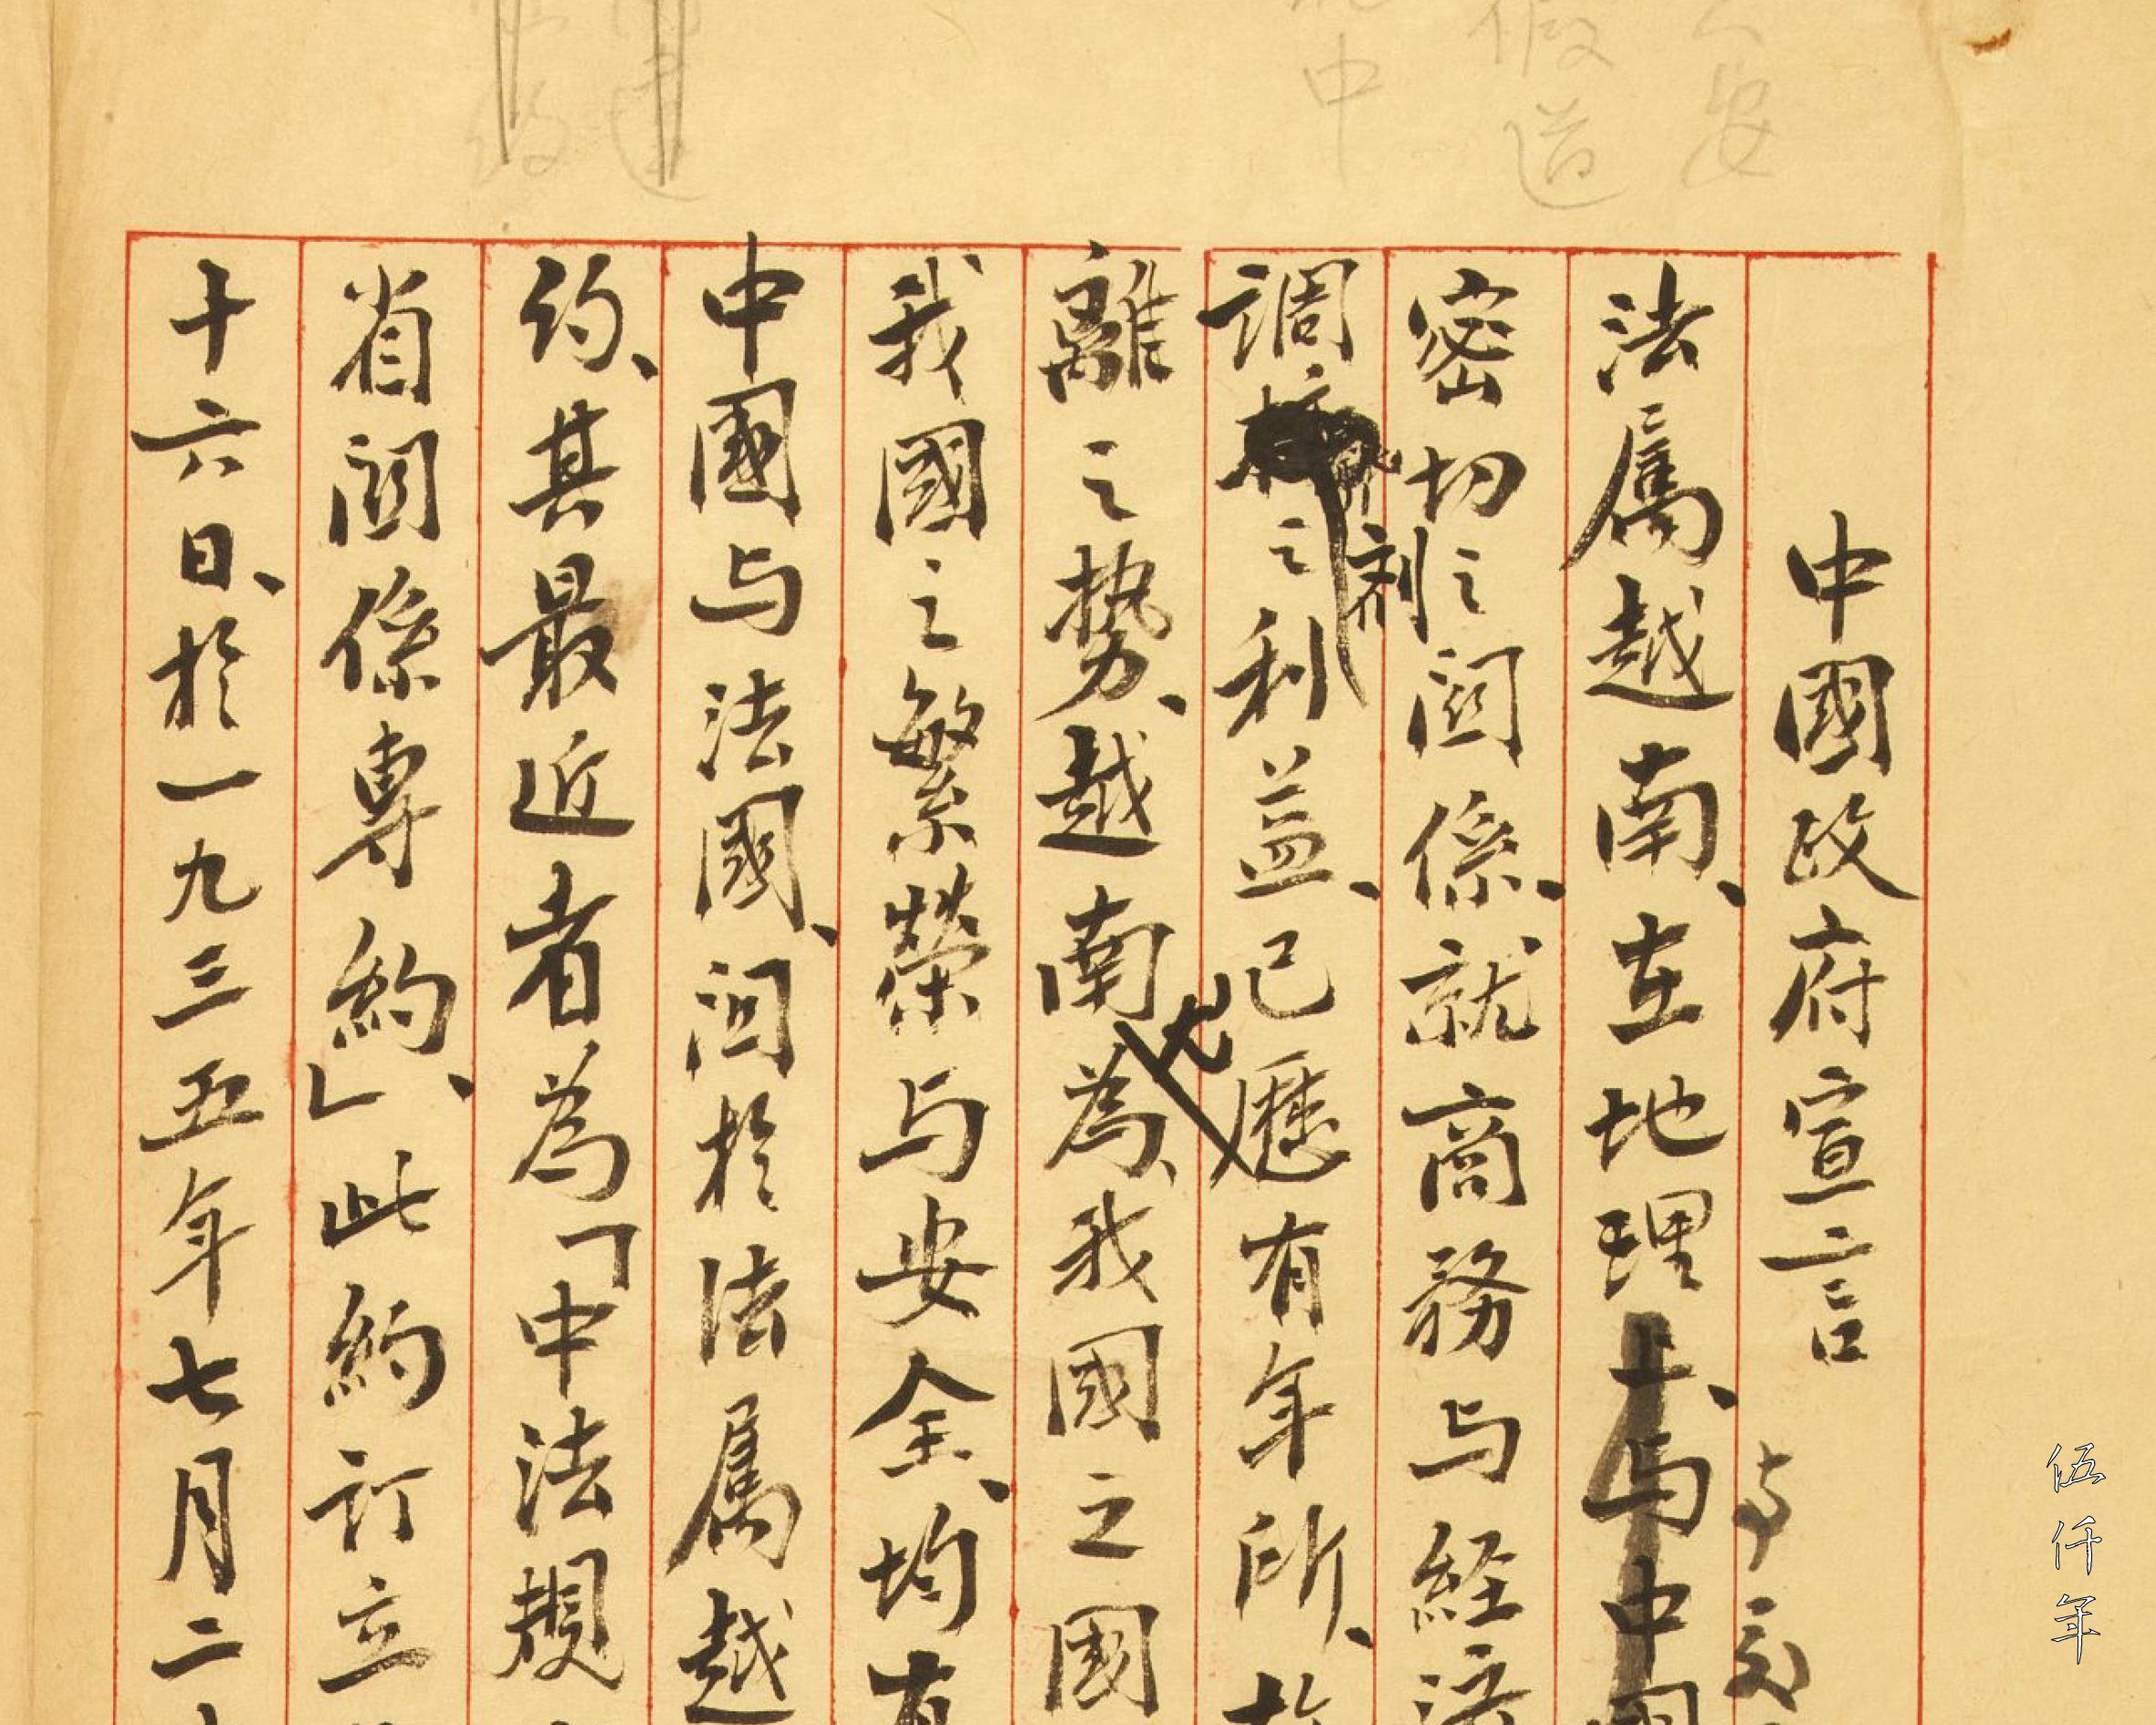 中國政府宣言
法属越南、在地理上、与中國
密切之関係、就商務与経济
調劑之利益、已歷有年所、故
離之势、越南為、我國之國
我國之繁榮与安全、均有
中國与法國、関於法属越
约、其最近者為「中法規
省関係専約」、此約訂立
十六日、於一九三五年七月二十
假道
安
中
約
伍仟年